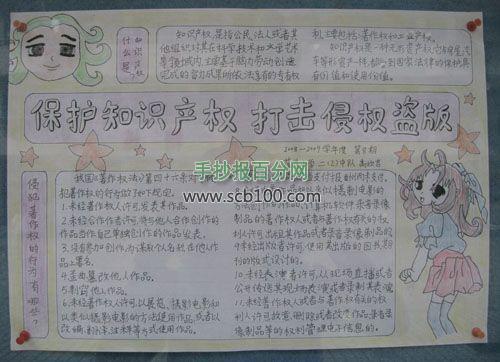 什么是知识产权
知识产权,是指公民、法人或者其
他组织对其在科学技术和文学艺术
等领域内,主要基于脑力劳动创造
完成的智力成果所依法享有的专有权
利,主要包括著作权和工业产权。
知识产权是一种无形资产权,它与房屋、汽
车等形资产一样,都受到国家法律的保护,具
有价值和使用价值。
保护知识产权 打击侵权盗版
2008-2009学年度 第
二(2)中队
手抄报百分网
www.scb100.com
侵犯著作权的行为有哪些?
我国《著作权法》第四十六条对
犯著作权的行为做了如下规定:
1.未经著作权人许可,发表其作品。
2.未经合作作者许可,将与他人合作创作的
作品当作自己单独创作的作品发表。
3.没有参加创作,为谋取个人名利,在他人作
品上署名。
4.歪曲、篡改他人作品。
5.剽窃他人作品。
6.未经著作权人许可,以展览、摄制电影和
以类似摄制电影的方法使用作品,或者以
改编、翻译、注释等方式使用作品。
支付报酬而未支付。
类似摄制电影的
计算机软件、录音录像
制品的著作权人或者与著作权有关的权
利人许可,出租其作品或者录音录像制品的
9.未经出版者许可,使用其出版的图书、期
刊的版式设计的。
10.未经表演者许可,从现场直播或者
公开传送其现场表演,或者录制其表演
11.未经著作权人或者与著作权有关的权
利人许可,故意删除或者改变作品、录音录
像制品等的权利管理电子信息的。